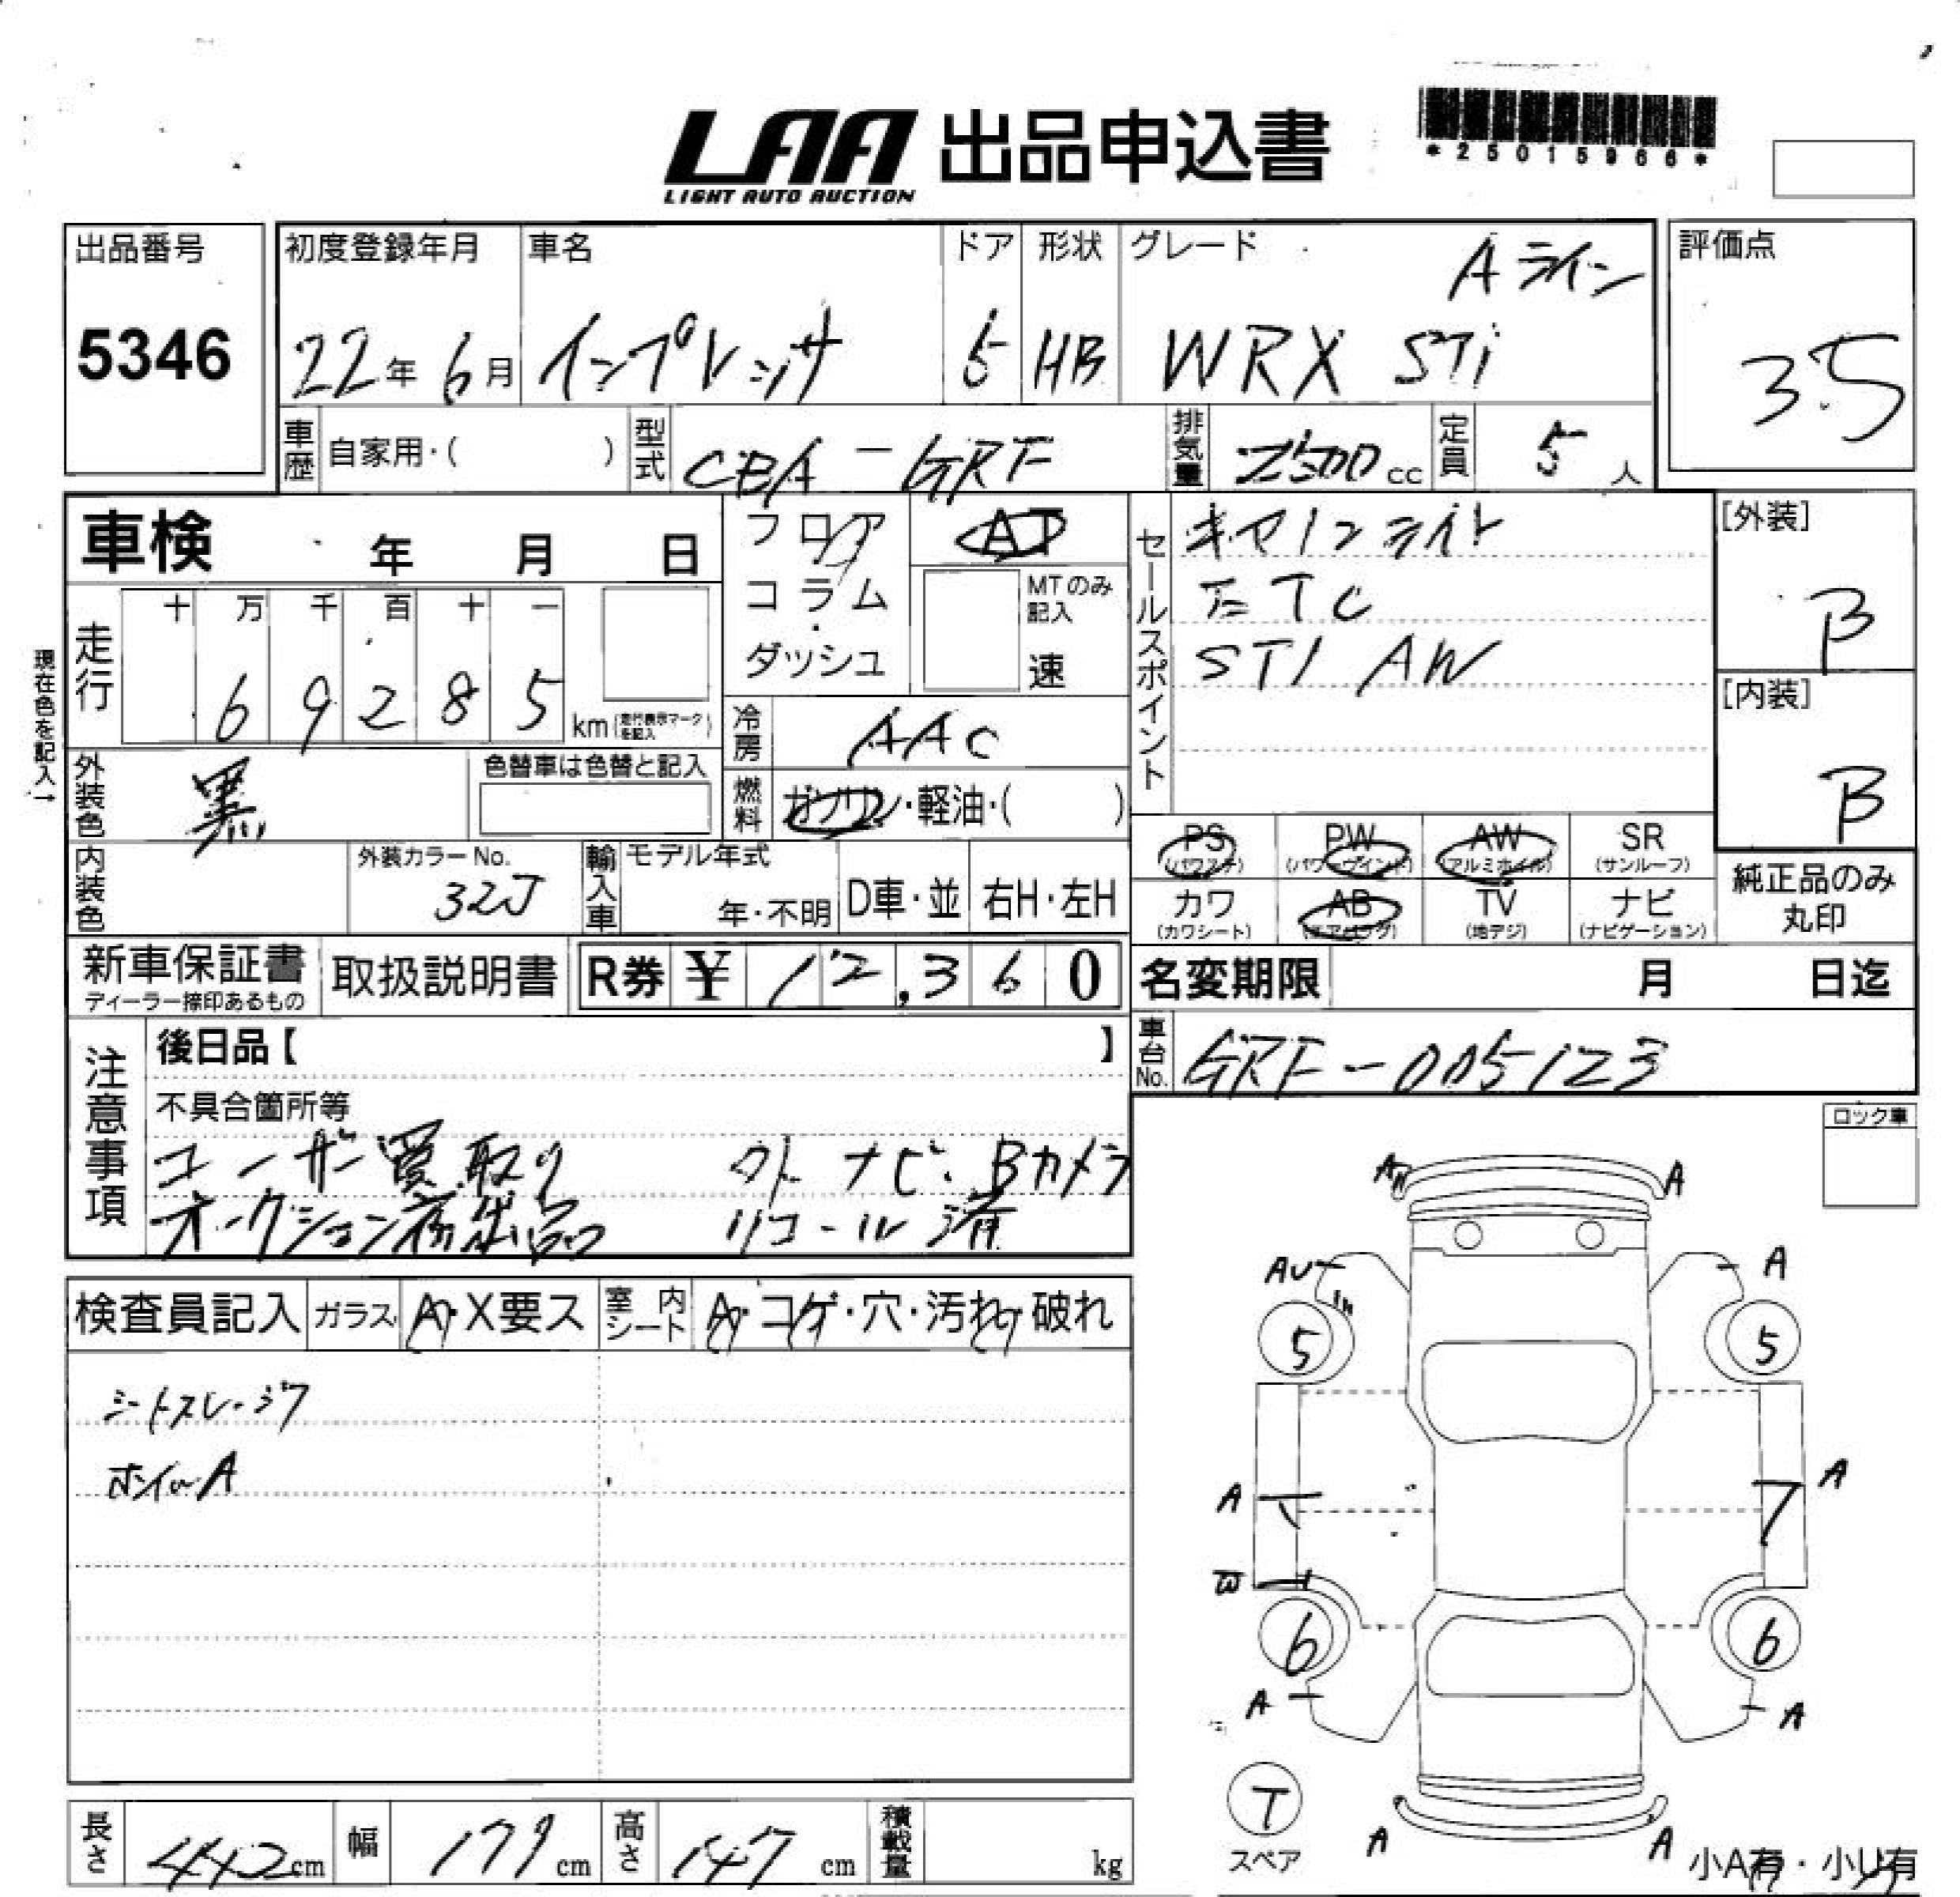 LAA 出品申込書
LIGHT AUTO AUCTION
*25015966*
出品番号
5346
初度登録年月
22年 6月
車名
インプレッサ
ドア
5
形状
HB
グレード
Aライン
WRX STi
評価点
3.5
車歴
自家用・( )
型式
CBA-GRF
排気量
2500cc
定員
5人
車検 年 月 日
現在色を記入→
走行
十 万 千 百 十 一
6 9 2 8 5
km(走行表示マークを記入)
フロア
コラム
ダッシュ
AT
MTのみ記入
速
冷房
AAC
燃料
ガソリン・軽油・( )
セールスポイント
キセノンライト
ETC
STI AW
[外装]
B
[内装]
B
外装色
黒
色替車は色替と記入
内装色
外装カラーNo.
32J
輸入車
モデル年式
年・不明
D車・並
右H・左H
PS
(パワステ)
PW
(パワーウインド)
AW
(アルミホイル)
SR
(サンルーフ)
カワ
(カワシート)
AB
(エアバッグ)
TV
(地デジ)
ナビ
(ナビゲーション)
純正品のみ
丸印
新車保証書
ディーラー捺印あるもの
取扱説明書
R券 ¥ 12,360
名変期限 月 日迄
車台No.
GRF-005123
注意事項
後日品【 】
不具合箇所等
ユーザー買取り
ナビ・Bカメラ
オークション初出品
リコール済
ロック車
検査員記入
ガラス
A・X要ス
室内シート
A・コゲ・穴・汚れ・破れ
シートスレ・シワ
ホイールA
A
A
AU
A
5
5
A
A
W
6
6
A
A
T
スペア
A
A
小A有・小U有
長さ
442cm
幅
179cm
高さ
147cm
積載量
kg